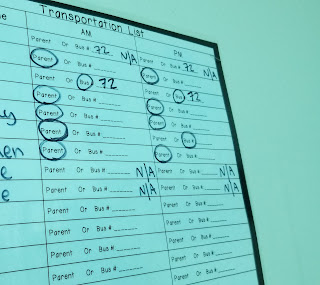 Transportation List
AM PM
Parent Or Bus # 72 N/A Parent Or Bus # 72 N/A
Parent Or Bus # ______ Parent Or Bus # ______
Parent Or Bus # 72 Parent Or Bus # 72
Parent Or Bus # ______ Parent Or Bus # ______
Parent Or Bus # ______ Parent Or Bus # ______
Parent Or Bus # ______ Parent Or Bus # ______
Parent Or Bus # ______ Parent Or Bus # ______
Parent Or Bus # ______ N/A Parent Or Bus # ______ N/A
Parent Or Bus # ______ N/A Parent Or Bus # ______ N/A
Parent Or Bus # ______ Parent Or Bus # ______
Parent Or Bus # ______ Parent Or Bus # ______
Parent Or Bus # ______ Parent Or Bus # ______
Parent Or Bus # ______ Parent Or Bus # ______